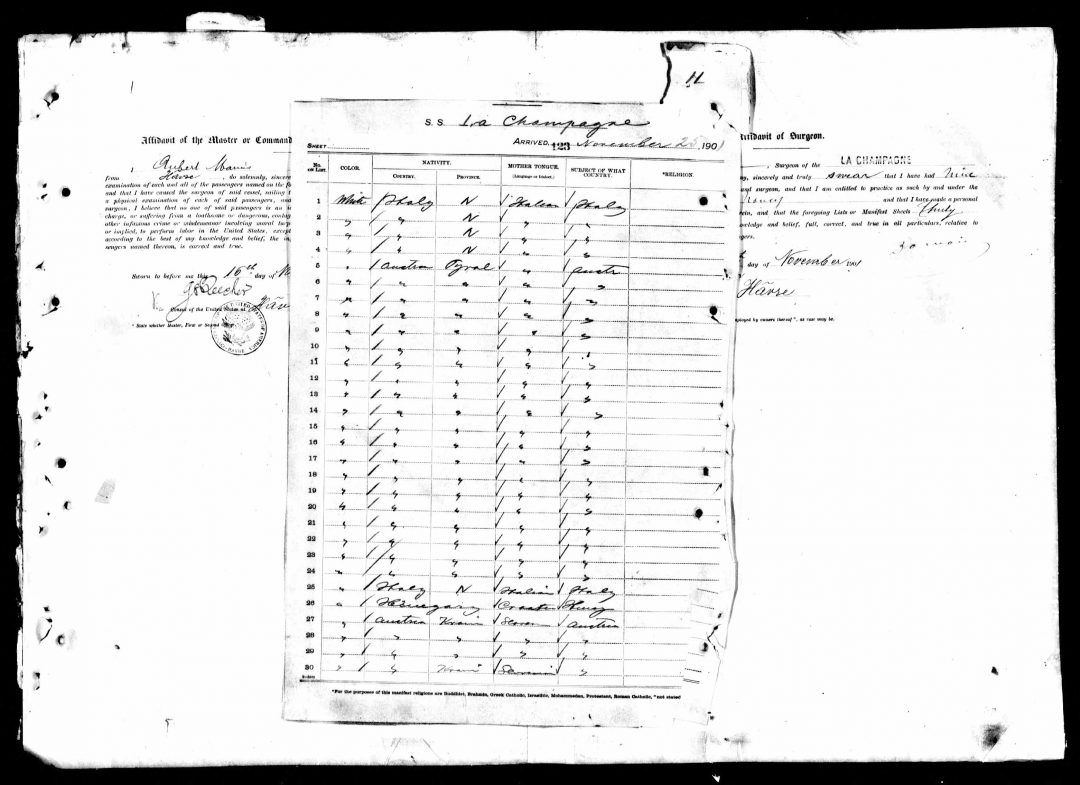 11
S. S. La Champagne
ARRIVED, 123 November 25 1901
SHEET
No. ON LIST. COLOR. NATIVITY. MOTHER TONGUE. (Language or Dialect.) SUBJECT OF WHAT COUNTRY. *RELIGION.
COUNTRY. PROVINCE.
1 White Italy N Italian Italy
2 " " N " "
3 " " N " "
4 " " N " "
5 " Austria Tyrol " Austr
6 " " " " "
7 " " " " "
8 " " " " "
9 " " " " "
10 " " " " "
11 " " " " "
12 " " " " "
13 " " " " "
14 " " " " "
15 " " " " "
16 " " " " "
17 " " " " "
18 " " " " "
19 " " " " "
20 " " " " "
21 " " " " "
22 " " " " "
23 " " " " "
24 " " " " "
25 " Italy N Italian Italy
26 " Hungary
27 " Austria Krain Austria
28 " " " " "
29 " " " " "
30 " " Krain "
*For the purposes of this manifest religions are Buddhist, Brahmin, Greek Catholic, Israelite, Mohammedan, Protestant, Roman Catholic, "not stated
Affidavit of the Master or Command
I,
from Havre, do solemnly, sincere
examination of each and all of the passengers named on the fo
and that I have caused the surgeon of said vessel, sailing t
a physical examination of each of said passengers, and
surgeon, I believe that no one of said passengers is an i
charge, or suffering from a loathsome or dangerous, contag
other infamous crime or misdemeanor involving moral turp
or implied, to perform labor in the United States, except
according to the best of my knowledge and belief, the in
sengers named therein, is correct and true.
Sworn to before me this 16th day of
Consul of the United States at Hâv
* State whether Master, First or Second
ffidavit of Surgeon.
, Surgeon of the LA CHAMPAGNE
ly, sincerely and truly swear that I have had nine
and surgeon, and that I am entitled to practice as such by and under the
and that I have made a personal
rein, and that the foregoing Lists or Manifest Sheets
owledge and belief, full, correct, and true in all particulars, relative to
gers.
day of November 1901
Hâvre
ployed by owners thereof", as case may be.